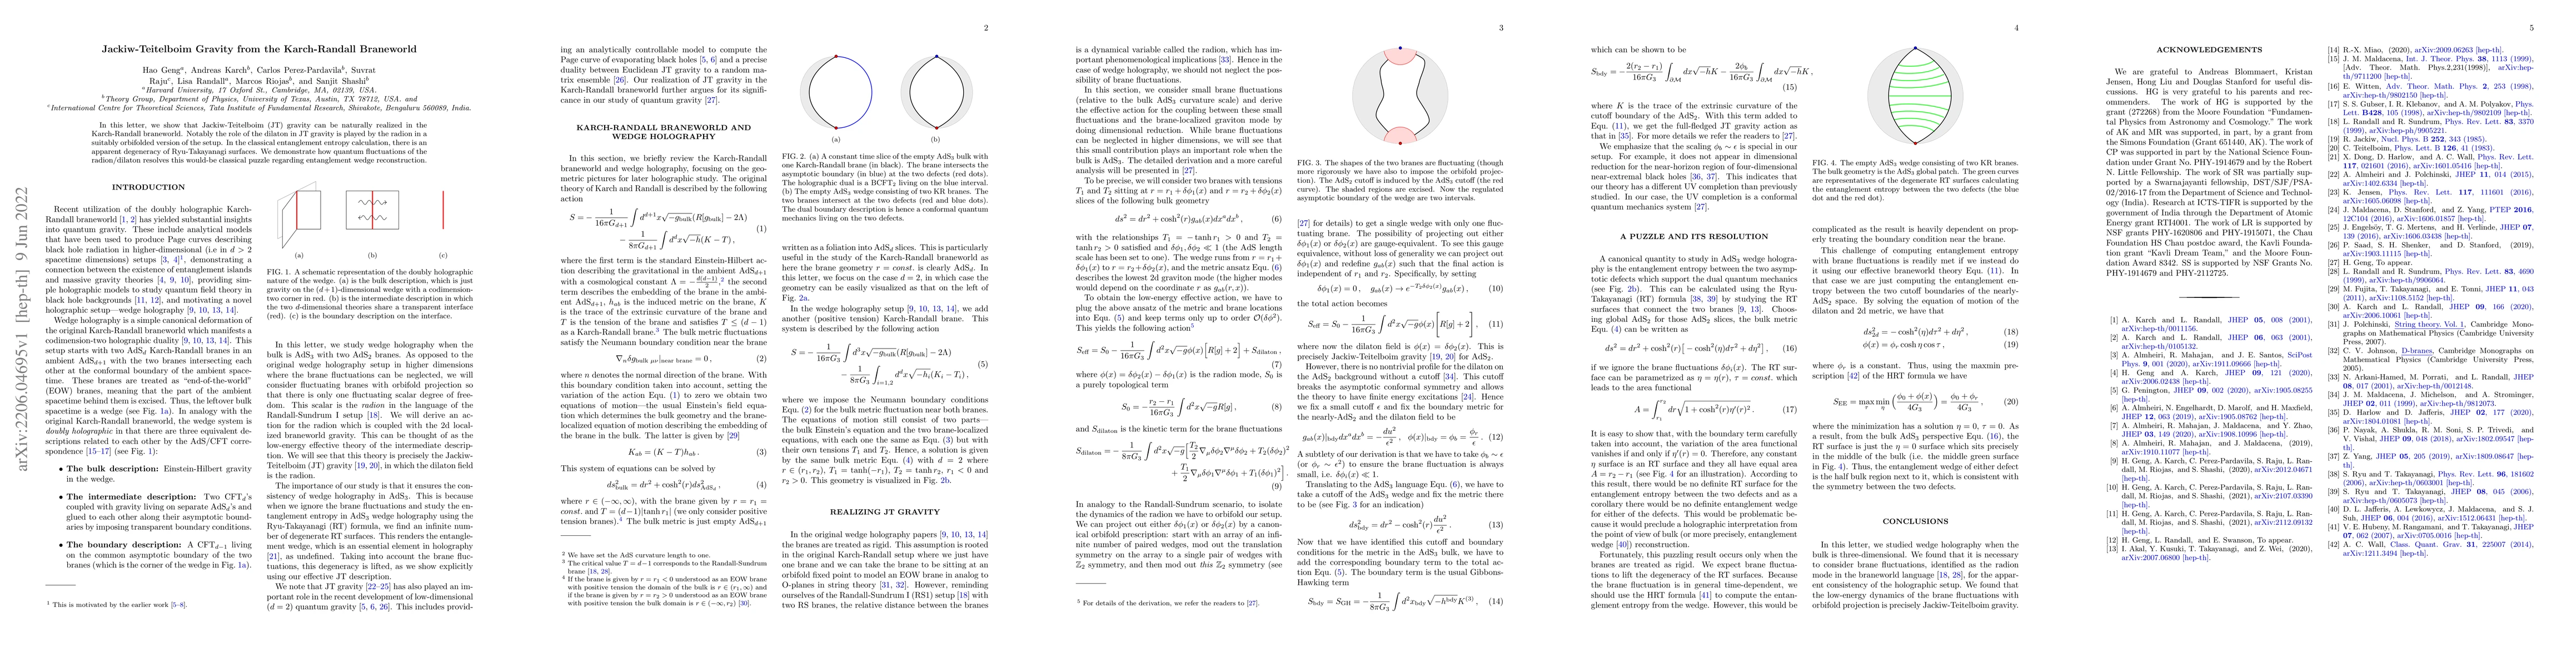 arXiv:2206.04695v1 [hep-th] 9 Jun 2022
Jackiw-Teitelboim Gravity from the Karch-Randall Braneworld
Hao Geng^a, Andreas Karch^b, Carlos Perez-Pardavila^b, Suvrat
Raju^c, Lisa Randall^a, Marcos Riojas^b, and Sanjit Shashi^b
^a Harvard University, 17 Oxford St., Cambridge, MA, 02139, USA.
^b Theory Group, Department of Physics, University of Texas, Austin, TX 78712, USA. and
^c International Centre for Theoretical Sciences, Tata Institute of Fundamental Research, Shivakote, Bengaluru 560089, India.
In this letter, we show that Jackiw-Teitelboim (JT) gravity can be naturally realized in the
Karch-Randall braneworld. Notably the role of the dilaton in JT gravity is played by the radion in a
suitably orbifolded version of the setup. In the classical entanglement entropy calculation, there is
an apparent degeneracy of Ryu-Takayanagi surfaces. We demonstrate how quantum fluctuations of the
radion/dilaton resolves this would-be classical puzzle regarding entanglement wedge reconstruction.
INTRODUCTION
Recent utilization of the doubly holographic Karch-
Randall braneworld [1, 2] has yielded substantial insights
into quantum gravity. These include analytical models
that have been used to produce Page curves describing
black hole radiation in higher-dimensional (ie in d > 2
spacetime dimensions) setups [3, 4]^1, demonstrating a
connection between the existence of entanglement islands
and massive gravity theories [4, 9, 10], providing sim-
ple holographic models to study quantum field theory in
black hole backgrounds [11, 12], and motivating a novel
holographic setup—wedge holography [9, 10, 13, 14].
Wedge holography is a simple canonical deformation of
the original Karch-Randall braneworld which manifests a
codimension-two holographic duality [9, 10, 13, 14]. This
setup starts with two AdS_d Karch-Randall branes in an
ambient AdS_{d+1} with the two branes intersecting each
other at the conformal boundary of the ambient space-
time. These branes are treated as “end-of-the-world”
(EOW) branes, meaning that the part of the ambient
spacetime behind them is excised. Thus, the leftover bulk
spacetime is a wedge (see Fig. 1a). In analogy with the
original Karch-Randall braneworld, the wedge system is
doubly holographic in that there are three equivalent de-
scriptions related to each other by the AdS/CFT corre-
spondence [15–17] (see Fig. 1):
• The bulk description: Einstein-Hilbert gravity
in the wedge.
• The intermediate description: Two CFT_d's
coupled with gravity living on separate AdS_d's and
glued to each other along their asymptotic bound-
aries by imposing transparent boundary conditions.
• The boundary description: A CFT_{d−1} living
on the common asymptotic boundary of the two
branes (which is the corner of the wedge in Fig. 1a).
1 This is motivated by the earlier work [5–8].
(a) (b) (c)
FIG. 1. A schematic representation of the doubly holographic
nature of the wedge. (a) is the bulk description, which is just
gravity on the (d+1)-dimensional wedge with a codimension-
two corner in red. (b) is the intermediate description in which
the two d-dimensional theories share a transparent interface
(red). (c) is the boundary description on the interface.
In this letter, we study wedge holography when the
bulk is AdS3 with two AdS2 branes. As opposed to the
original wedge holography setup in higher dimensions
where the brane fluctuations can be neglected, we will
consider fluctuating branes with orbifold projection so
that there is only one fluctuating scalar degree of free-
dom. This scalar is the radion in the language of the
Randall-Sundrum I setup [18]. We will derive an ac-
tion for the radion which is coupled with the 2d local-
ized braneworld gravity. This can be thought of as the
low-energy effective theory of the intermediate descrip-
tion. We will see that this theory is precisely the Jackiw-
Teitelboim (JT) gravity [19, 20], in which the dilaton field
is the radion.
The importance of our study is that it ensures the con-
sistency of wedge holography in AdS3. This is because
when we ignore the brane fluctuations and study the en-
tanglement entropy in AdS3 wedge holography using the
Ryu-Takayanagi (RT) formula, we find an infinite num-
ber of degenerate RT surfaces. This renders the entangle-
ment wedge, which is an essential element in holography
[21], as undefined. Taking into account the brane fluc-
tuations, this degeneracy is lifted, as we show explicitly
using our effective JT description.
We note that JT gravity [22–25] has also played an im-
portant role in the recent development of low-dimensional
(d = 2) quantum gravity [5, 6, 26]. This includes provid-
2
ing an analytically controllable model to compute the
Page curve of evaporating black holes [5, 6] and a precise
duality between Euclidean JT gravity to a random ma-
trix ensemble [26]. Our realization of JT gravity in the
Karch-Randall braneworld further argues for its signifi-
cance in our study of quantum gravity [27].
KARCH-RANDALL BRANEWORLD AND
WEDGE HOLOGRAPHY
In this section, we briefly review the Karch-Randall
braneworld and wedge holography, focusing on the geo-
metric pictures for later holographic study. The original
theory of Karch and Randall is described by the following
action
S = − 1/(16πG_{d+1}) ∫ d^{d+1}x √−g_bulk (R[g_bulk] − 2Λ)
− 1/(8πG_{d+1}) ∫ d^d x √−h (K − T) , (1)
where the first term is the standard Einstein-Hilbert ac-
tion describing the gravitational in the ambient AdS_{d+1}
with a cosmological constant Λ = −d(d−1)/2,^2 the second
term describes the embedding of the brane in the ambi-
ent AdS_{d+1}, h_ab is the induced metric on the brane, K
is the trace of the extrinsic curvature of the brane and
T is the tension of the brane and satisfies T ≤ (d − 1)
as a Karch-Randall brane.^3 The bulk metric fluctuations
satisfy the Neumann boundary condition near the brane
∇_n δg_{bulk μν}|_{near brane} = 0 , (2)
where n denotes the normal direction of the brane. With
this boundary condition taken into account, setting the
variation of the action Eq. (1) to zero we obtain two
equations of motion—the usual Einstein's field equa-
tion which determines the bulk geometry and the brane-
localized equation of motion describing the embedding of
the brane in the bulk. The latter is given by [29]
K_ab = (K − T)h_ab . (3)
This system of equations can be solved by
ds²_bulk = dr² + cosh²(r)ds²_{AdS_d} , (4)
where r ∈ (−∞, ∞), with the brane given by r = r_1 =
const. and T = (d−1)|tanh r_1| (we only consider positive
tension branes).^4 The bulk metric is just empty AdS_{d+1}
2 We have set the AdS curvature length to one.
3 The critical value T = d − 1 corresponds to the Randall-Sundrum
brane [18, 28].
4 If the brane is given by r = r_1 < 0 understood as an EOW brane
with positive tension the domain of the bulk is r ∈ (r_1, ∞) and
if the brane is given by r = r_2 > 0 understood as an EOW brane
with positive tension the bulk domain is r ∈ (−∞, r_2) [30].
(a) (b)
FIG. 2. (a) A constant time slice of the empty AdS3 bulk with
one Karch-Randall brane (in black). The brane intersects the
asymptotic boundary (in blue) at the two defects (red dots).
The holographic dual is a BCFT2 living on the blue interval.
(b) The empty AdS3 wedge consisting of two KR branes. The
two branes intersect at the two defects (red and blue dots).
The dual boundary description is hence a conformal quantum
mechanics living on the two defects.
written as a foliation into AdS_d slices. This is particularly
useful in the study of the Karch-Randall braneworld as
here the brane geometry r = const. is clearly AdS_d. In
this letter, we focus on the case d = 2, in which case the
geometry can be easily visualized as that on the left of
Fig. 2a.
In the wedge holography setup [9, 10, 13, 14], we add
another (positive tension) Karch-Randall brane. This
system is described by the following action
S = − 1/(16πG_3) ∫ d³x √−g_bulk (R[g_bulk] − 2Λ)
− 1/(8πG_3) ∫_{i=1,2} d^d x √−h_i (K_i − T_i) , (5)
where we impose the Neumann boundary conditions
Eq. (2) for the bulk metric fluctuation near both branes.
The equations of motion still consist of two parts—
the bulk Einstein's equation and the two brane-localized
equations, with each one the same as Eq. (3) but with
their own tensions T_1 and T_2. Hence, a solution is given
by the same bulk metric Eq. (4) with d = 2 where
r ∈ (r_1, r_2), T_1 = tanh(−r_1), T_2 = tanh r_2, r_1 < 0 and
r_2 > 0. This geometry is visualized in Fig. 2b.
REALIZING JT GRAVITY
In the original wedge holography papers [9, 10, 13, 14]
the branes are treated as rigid. This assumption is rooted
in the original Karch-Randall setup where we just have
one brane and we can take the brane to be sitting at an
orbifold fixed point to model an EOW brane in analog to
O-planes in string theory [31, 32]. However, reminding
ourselves of the Randall-Sundrum I (RS1) setup [18] with
two RS branes, the relative distance between the branes
3
is a dynamical variable called the radion, which has im-
portant phenomenological implications [33]. Hence in the
case of wedge holography, we should not neglect the pos-
sibility of brane fluctuations.
In this section, we consider small brane fluctuations
(relative to the bulk AdS3 curvature scale) and derive
the effective action for the coupling between these small
fluctuations and the brane-localized graviton mode by
doing dimensional reduction. While brane fluctuations
can be neglected in higher dimensions, we will see that
this small contribution plays an important role when the
bulk is AdS3. The detailed derivation and a more careful
analysis will be presented in [27].
To be precise, we will consider two branes with tensions
T_1 and T_2 sitting at r = r_1 + δφ_1(x) and r = r_2 + δφ_2(x)
slices of the following bulk geometry
ds² = dr² + cosh²(r)g_ab(x)dx^a dx^b , (6)
with the relationships T_1 = −tanh r_1 > 0 and T_2 =
tanh r_2 > 0 satisfied and δφ_1, δφ_2 ≪ 1 (the AdS length
scale has been set to one). The wedge runs from r = r_1 +
δφ_1(x) to r = r_2+δφ_2(x), and the metric ansatz Eq. (6)
describes the lowest 2d graviton mode (the higher modes
would depend on the coordinate r as g_ab(r, x)).
To obtain the low-energy effective action, we have to
plug the above ansatz of the metric and brane locations
into Eq. (5) and keep terms only up to order O(δφ²).
This yields the following action^5
S_eff = S_0 − 1/(16πG_3) ∫ d²x √−g φ(x)[R[g] + 2] + S_dilaton ,
(7)
where φ(x) = δφ_2(x) − δφ_1(x) is the radion mode, S_0 is
a purely topological term
S_0 = − (r_2 − r_1)/(16πG_3) ∫ d²x √−g R[g] , (8)
and S_dilaton is the kinetic term for the brane fluctuations
S_dilaton = − 1/(8πG_3) ∫ d²x √−g [ T_2/2 ∇_μδφ_2∇^μδφ_2 + T_2(δφ_2)²
+ T_1/2 ∇_μδφ_1∇^μδφ_1 + T_1(δφ_1)² ] .
(9)
In analogy to the Randall-Sundrum scenario, to isolate
the dynamics of the radion we have to orbifold our setup.
We can project out either δφ_1(x) or δφ_2(x) by a canon-
ical orbifold prescription: start with an array of an infi-
nite number of paired wedges, mod out the translation
symmetry on the array to a single pair of wedges with
Z_2 symmetry, and then mod out this Z_2 symmetry (see
5 For details of the derivation, we refer the readers to [27].
FIG. 3. The shapes of the two branes are fluctuating (though
more rigorously we have also to impose the orbifold projec-
tion). The AdS2 cutoff is induced by the AdS3 cutoff (the red
curve). The shaded regions are excised. Now the regulated
asymptotic boundary of the wedge are two intervals.
[27] for details) to get a single wedge with only one fluc-
tuating brane. The possibility of projecting out either
δφ_1(x) or δφ_2(x) are gauge-equivalent. To see this gauge
equivalence, without loss of generality we can project out
δφ_1(x) and redefine g_ab(x) such that the final action is
independent of r_1 and r_2. Specifically, by setting
δφ_1(x) = 0 , g_ab(x) → e^{−T_2δφ_2(x)} g_ab(x) , (10)
the total action becomes
S_eff = S_0 − 1/(16πG_3) ∫ d²x √−g φ(x)[R[g] + 2] , (11)
where now the dilaton field is φ(x) = δφ_2(x). This is
precisely Jackiw-Teitelboim gravity [19, 20] for AdS2.
However, there is no nontrivial profile for the dilaton on
the AdS2 background without a cutoff [34]. This cutoff
breaks the asymptotic conformal symmetry and allows
the theory to have finite energy excitations [24]. Hence
we fix a small cutoff ϵ and fix the boundary metric for
the nearly-AdS2 and the dilaton field to be
g_ab(x)|_bdy dx^a dx^b = −du²/ϵ² , φ(x)|_bdy = φ_b = φ_r/ϵ . (12)
A subtlety of our derivation is that we have to take φ_b ∼ ϵ
(or φ_r ∼ ϵ²) to ensure the brane fluctuation is always
small, i.e. δφ_i(x) ≪ 1.
Translating to the AdS3 language Eq. (6), we have to
take a cutoff of the AdS3 wedge and fix the metric there
to be (see Fig. 3 for an indication)
ds²_bdy = dr² − cosh²(r) du²/ϵ² . (13)
Now that we have identified this cutoff and boundary
conditions for the metric in the AdS3 bulk, we have to
add the corresponding boundary term to the total ac-
tion Eq. (5). The boundary term is the usual Gibbons-
Hawking term
S_bdy = S_GH = − 1/(8πG_3) ∫ d²x_bdy √−h^bdy K^(3) , (14)
4
which can be shown to be
S_bdy = − 2(r_2 − r_1)/(16πG_3) ∫_∂M dx √−h K − 2φ_b/(16πG_3) ∫_∂M dx √−h K ,
(15)
where K is the trace of the extrinsic curvature of the
cutoff boundary of the AdS2. With this term added to
Eq. (11), we get the full-fledged JT gravity action as
that in [35]. For more details we refer the readers to [27].
We emphasize that the scaling φ_b ∼ ϵ is special in our
setup. For example, it does not appear in dimensional
reduction for the near-horizon region of four-dimensional
near-extremal black holes [36, 37]. This indicates that
our theory has a different UV completion than previously
studied. In our case, the UV completion is a conformal
quantum mechanics system [27].
A PUZZLE AND ITS RESOLUTION
A canonical quantity to study in AdS3 wedge hologra-
phy is the entanglement entropy between the two asymp-
totic defects which support the dual quantum mechanics
(see Fig. 2b). This can be calculated using the Ryu-
Takayanagi (RT) formula [38, 39] by studying the RT
surfaces that connect the two branes [9, 13]. Choos-
ing global AdS2 for those AdS2 slices, the bulk metric
Eq. (4) can be written as
ds² = dr² + cosh²(r)[− cosh²(η)dτ² + dη²] , (16)
if we ignore the brane fluctuations δφ_i(x). The RT sur-
face can be parametrized as η = η(r), τ = const. which
leads to the area functional
A = ∫_{r_1}^{r_2} dr √(1 + cosh²(r)η′(r)²) . (17)
It is easy to show that, with the boundary term carefully
taken into account, the variation of the area functional
vanishes if and only if η′(r) = 0. Therefore, any constant
η surface is an RT surface and they all have equal area
r_2 − r_1 (see Fig. 4 for an illustration). According to
this result, there would be no definite RT surface for the
entanglement entropy between the two defects and as a
corollary there would be no definite entanglement wedge
for either of the defects. This would be problematic be-
cause it would preclude a holographic interpretation from
the point of view of bulk (or more precisely, entanglement
wedge [40]) reconstruction.
Fortunately, this puzzling result occurs only when the
branes are treated as rigid. We expect brane fluctua-
tions to lift the degeneracy of the RT surfaces. Because
the brane fluctuation is in general time-dependent, we
should use the HRT formula [41] to compute the entan-
glement entropy from the wedge. However, this would be
FIG. 4. The empty AdS3 wedge consisting of two KR branes.
The bulk geometry is the AdS3 global patch. The green curves
are representatives of the degenerate RT surfaces calculating
the entanglement entropy between the two defects (the blue
dot and the red dot).
complicated as the result is heavily dependent on prop-
erly treating the boundary condition near the brane.
This challenge of computing entanglement entropy
with brane fluctuations is readily met if we instead do
it using our effective braneworld theory Eq. (11). In
that case we are just computing the entanglement en-
tropy between the two cutoff boundaries of the nearly-
AdS2 space. By solving the equation of motion of the
dilaton and 2d metric, we have that
ds²_2d = − cosh²(η)dτ² + dη² , (18)
φ(x) = φ_r cosh η cos τ , (19)
where φ_r is a constant. Thus, using the maxmin pre-
scription [42] of the HRT formula we have
S_EE = max_τ min_η (φ_0 + φ(x))/(4G_3) = (φ_0 + φ_r)/(4G_3) , (20)
where the minimization has a solution η = 0, τ = 0. As
a result, from the bulk AdS3 perspective Eq. (16), the
RT surface is just the η = 0 surface which sits precisely
in the middle of the bulk (i.e. the middle green surface
in Fig. 4). Thus, the entanglement wedge of either defect
is the half bulk region next to it, which is consistent with
the symmetry between the two defects.
CONCLUSIONS
In this letter, we studied wedge holography when the
bulk is three-dimensional. We found that it is necessary
to consider brane fluctuations, identified as the radion
mode in the braneworld language [18, 28], for the appar-
ent consistency of the holographic setup. We found that
the low-energy dynamics of the brane fluctuations with
orbifold projection is precisely Jackiw-Teitelboim gravity.
5
ACKNOWLEDGEMENTS
We are grateful to Andreas Blommaert, Kristan
Jensen, Hong Liu and Douglas Stanford for useful dis-
cussions. HG is very grateful to his parents and rec-
ommenders. The work of HG is supported by the
grant (272268) from the Moore Foundation “Fundamen-
tal Physics from Astronomy and Cosmology.” The work
of AK and MR was supported, in part, by a grant from
the Simons Foundation (Grant 651440, AK). The work of
CP was supported in part by the National Science Foun-
dation under Grant No. PHY-1914679 and by the Robert
N. Little Fellowship. The work of SR was partially sup-
ported by a Swarnajayanti fellowship, DST/SJF/PSA-
02/2016-17 from the Department of Science and Technol-
ogy (India). Research at ICTS-TIFR is supported by the
government of India through the Department of Atomic
Energy grant RTI4001. The work of LR is supported by
NSF grants PHY-1620806 and PHY-1915071, the Chau
Foundation HS Chau postdoc award, the Kavli Founda-
tion grant “Kavli Dream Team,” and the Moore Foun-
dation Award 8342. SS is supported by NSF Grants No.
PHY-1914679 and PHY-2112725.
[1] A. Karch and L. Randall, JHEP 05, 008 (2001),
arXiv:hep-th/0011156.
[2] A. Karch and L. Randall, JHEP 06, 063 (2001),
arXiv:hep-th/0105132.
[3] A. Almheiri, R. Mahajan, and J. E. Santos, SciPost
Phys. 9, 001 (2020), arXiv:1911.09666 [hep-th].
[4] H. Geng and A. Karch, JHEP 09, 121 (2020),
arXiv:2006.02438 [hep-th].
[5] G. Penington, JHEP 09, 002 (2020), arXiv:1905.08255
[hep-th].
[6] A. Almheiri, N. Engelhardt, D. Marolf, and H. Maxfield,
JHEP 12, 063 (2019), arXiv:1905.08762 [hep-th].
[7] A. Almheiri, R. Mahajan, J. Maldacena, and Y. Zhao,
JHEP 03, 149 (2020), arXiv:1908.10996 [hep-th].
[8] A. Almheiri, R. Mahajan, and J. Maldacena, (2019),
arXiv:1910.11077 [hep-th].
[9] H. Geng, A. Karch, C. Perez-Pardavila, S. Raju, L. Ran-
dall, M. Riojas, and S. Shashi, (2020), arXiv:2012.04671
[hep-th].
[10] H. Geng, A. Karch, C. Perez-Pardavila, S. Raju, L. Ran-
dall, M. Riojas, and S. Shashi, (2021), arXiv:2107.03390
[hep-th].
[11] H. Geng, A. Karch, C. Perez-Pardavila, S. Raju, L. Ran-
dall, M. Riojas, and S. Shashi, (2021), arXiv:2112.09132
[hep-th].
[12] H. Geng, L. Randall, and E. Swanson, To appear.
[13] I. Akal, Y. Kusuki, T. Takayanagi, and Z. Wei, (2020),
arXiv:2007.06800 [hep-th].
[14] R.-X. Miao, (2020), arXiv:2009.06263 [hep-th].
[15] J. M. Maldacena, Int. J. Theor. Phys. 38, 1113 (1999),
[Adv. Theor. Math. Phys.2,231(1998)], arXiv:hep-
th/9711200 [hep-th].
[16] E. Witten, Adv. Theor. Math. Phys. 2, 253 (1998),
arXiv:hep-th/9802150 [hep-th].
[17] S. S. Gubser, I. R. Klebanov, and A. M. Polyakov, Phys.
Lett. B428, 105 (1998), arXiv:hep-th/9802109 [hep-th].
[18] L. Randall and R. Sundrum, Phys. Rev. Lett. 83, 3370
(1999), arXiv:hep-ph/9905221.
[19] R. Jackiw, Nucl. Phys. B 252, 343 (1985).
[20] C. Teitelboim, Phys. Lett. B 126, 41 (1983).
[21] X. Dong, D. Harlow, and A. C. Wall, Phys. Rev. Lett.
117, 021601 (2016), arXiv:1601.05416 [hep-th].
[22] A. Almheiri and J. Polchinski, JHEP 11, 014 (2015),
arXiv:1402.6334 [hep-th].
[23] K. Jensen, Phys. Rev. Lett. 117, 111601 (2016),
arXiv:1605.06098 [hep-th].
[24] J. Maldacena, D. Stanford, and Z. Yang, PTEP 2016,
12C104 (2016), arXiv:1606.01857 [hep-th].
[25] J. Engelsöy, T. G. Mertens, and H. Verlinde, JHEP 07,
139 (2016), arXiv:1606.03438 [hep-th].
[26] P. Saad, S. H. Shenker, and D. Stanford, (2019),
arXiv:1903.11115 [hep-th].
[27] H. Geng, To appear.
[28] L. Randall and R. Sundrum, Phys. Rev. Lett. 83, 4690
(1999), arXiv:hep-th/9906064.
[29] M. Fujita, T. Takayanagi, and E. Tonni, JHEP 11, 043
(2011), arXiv:1108.5152 [hep-th].
[30] A. Karch and L. Randall, JHEP 09, 166 (2020),
arXiv:2006.10061 [hep-th].
[31] J. Polchinski, String theory. Vol. 1, Cambridge Mono-
graphs on Mathematical Physics (Cambridge University
Press, 2007).
[32] C. V. Johnson, D-branes, Cambridge Monographs on
Mathematical Physics (Cambridge University Press,
2005).
[33] N. Arkani-Hamed, M. Porrati, and L. Randall, JHEP
08, 017 (2001), arXiv:hep-th/0012148.
[34] J. M. Maldacena, J. Michelson, and A. Strominger,
JHEP 02, 011 (1999), arXiv:hep-th/9812073.
[35] D. Harlow and D. Jafferis, JHEP 02, 177 (2020),
arXiv:1804.01081 [hep-th].
[36] P. Nayak, A. Shukla, R. M. Soni, S. P. Trivedi, and
V. Vishal, JHEP 09, 048 (2018), arXiv:1802.09547 [hep-
th].
[37] Z. Yang, JHEP 05, 205 (2019), arXiv:1809.08647 [hep-
th].
[38] S. Ryu and T. Takayanagi, Phys. Rev. Lett. 96, 181602
(2006), arXiv:hep-th/0603001 [hep-th].
[39] S. Ryu and T. Takayanagi, JHEP 08, 045 (2006),
arXiv:hep-th/0605073 [hep-th].
[40] D. L. Jafferis, A. Lewkowycz, J. Maldacena, and S. J.
Suh, JHEP 06, 004 (2016), arXiv:1512.06431 [hep-th].
[41] V. E. Hubeny, M. Rangamani, and T. Takayanagi, JHEP
07, 062 (2007), arXiv:0705.0016 [hep-th].
[42] A. C. Wall, Class. Quant. Grav. 31, 225007 (2014),
arXiv:1211.3494 [hep-th].